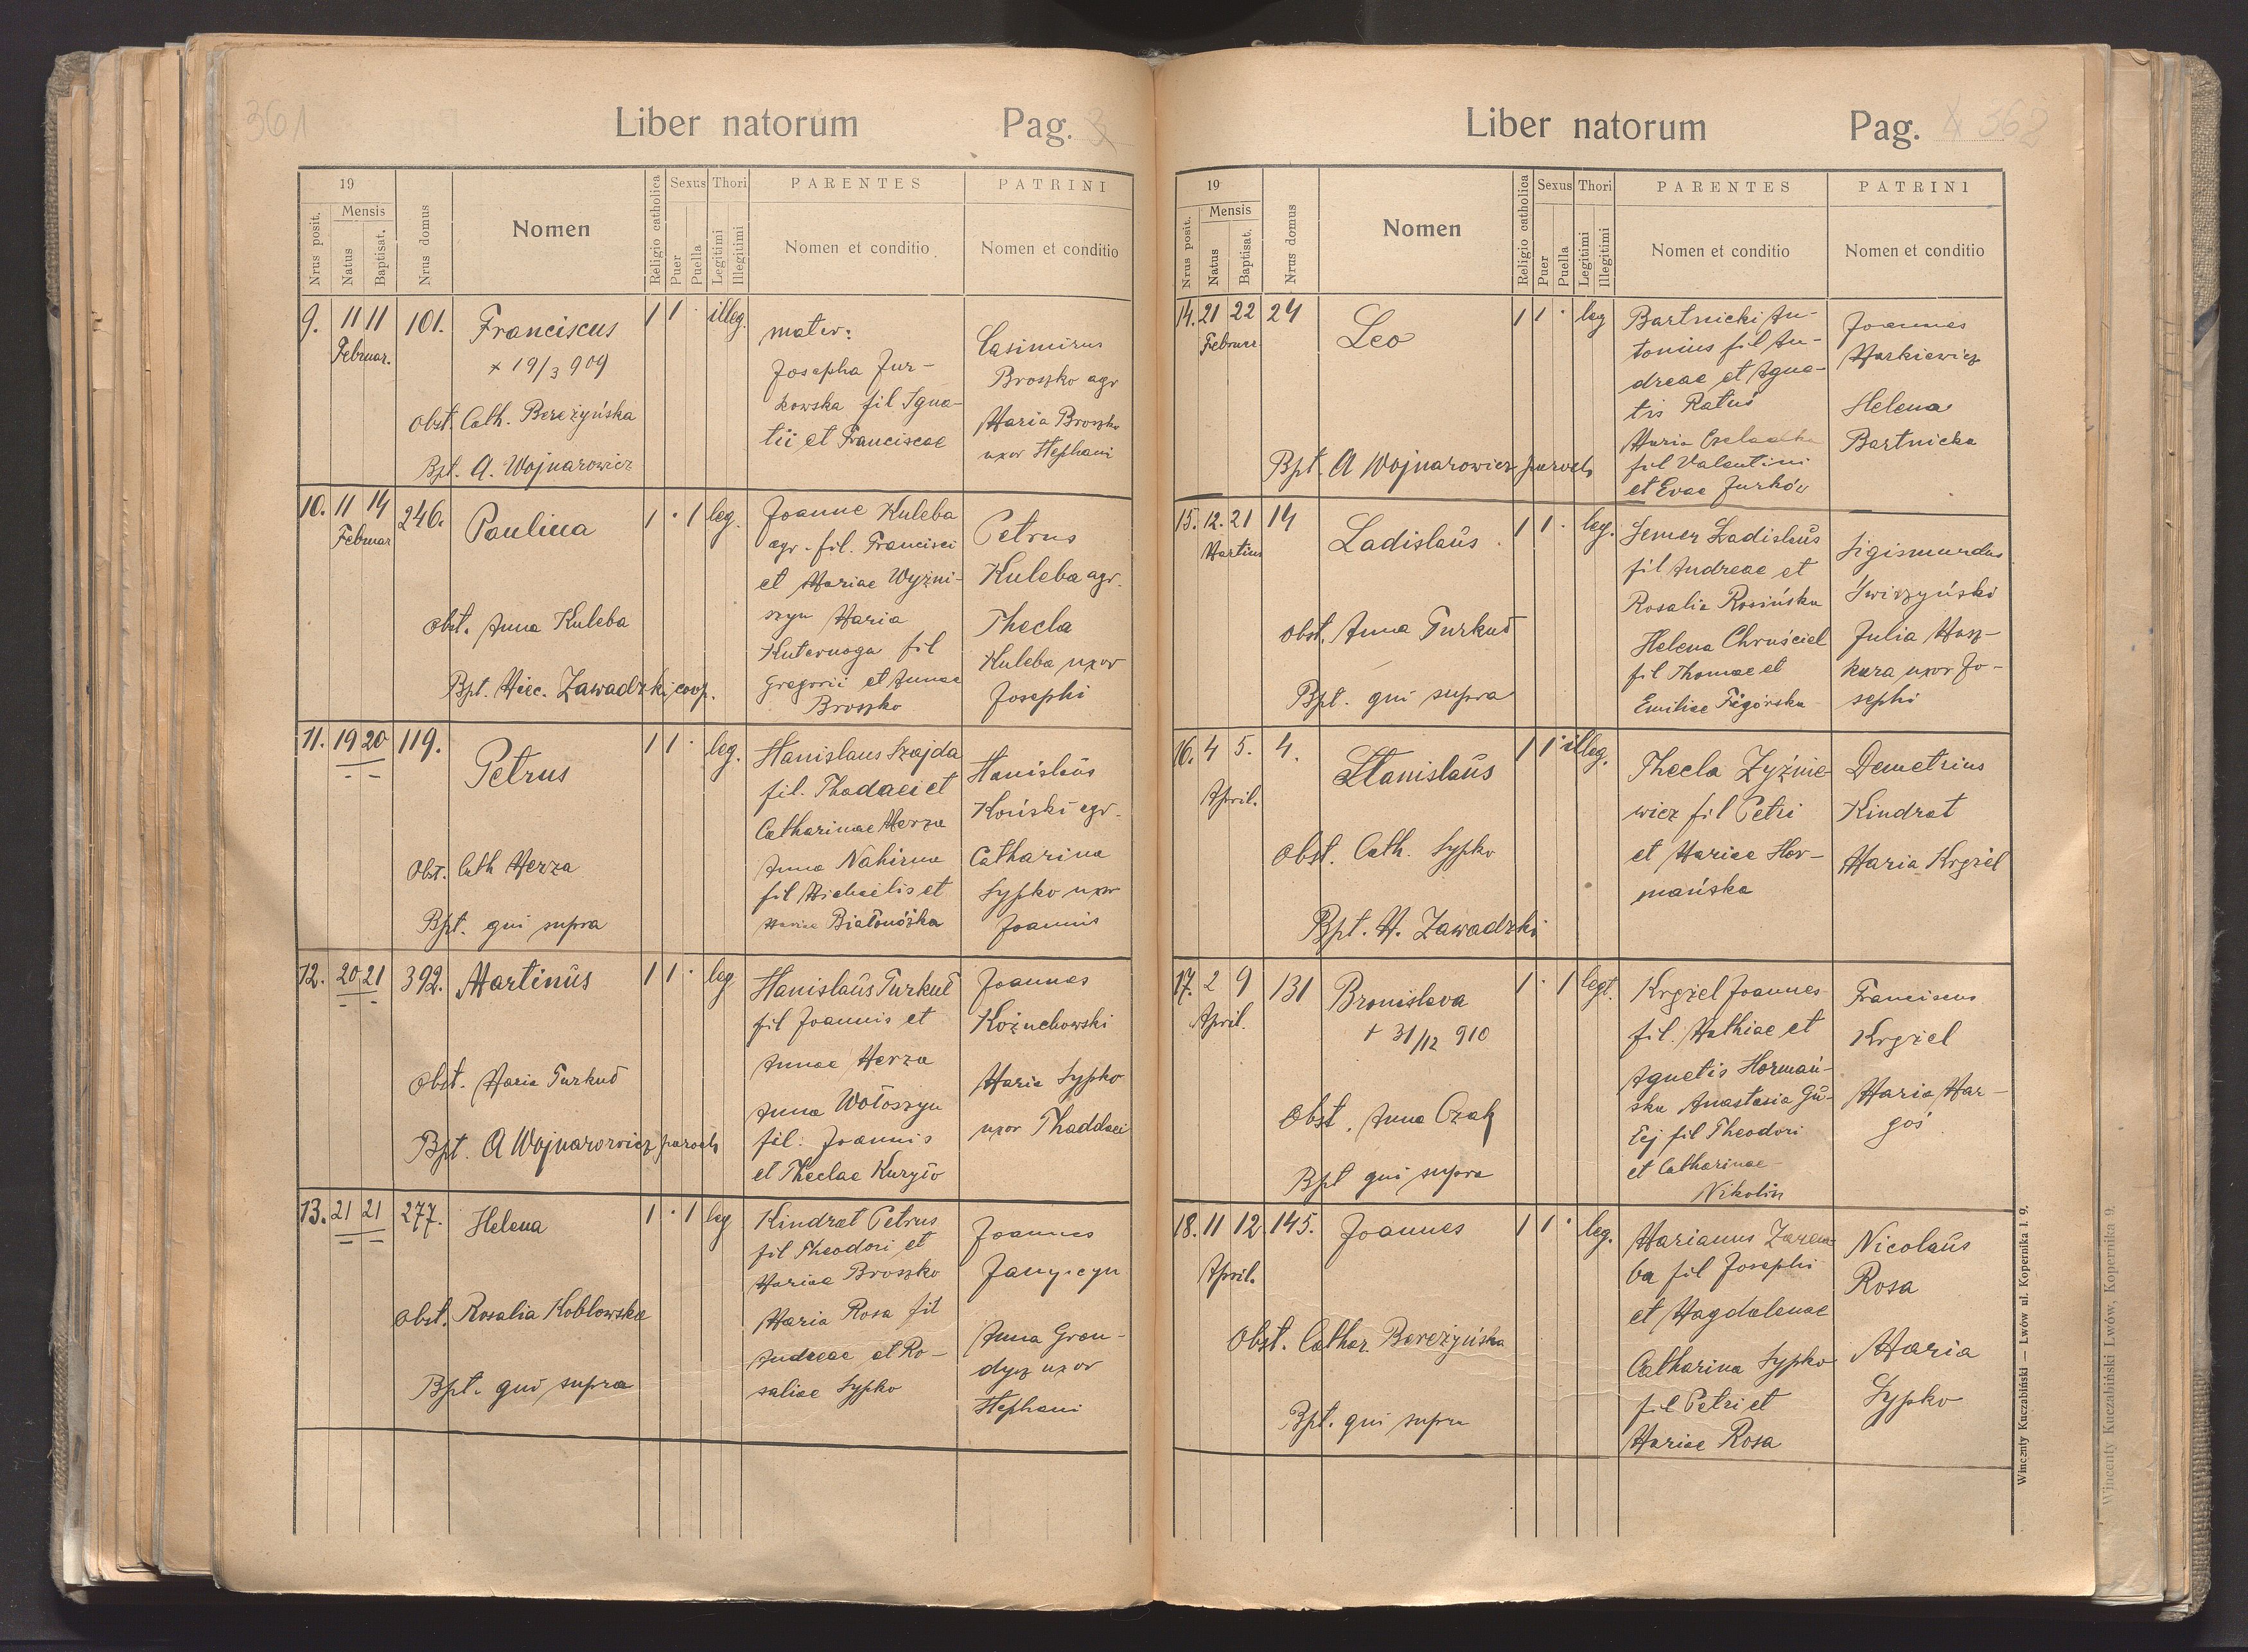 361
Liber natorum Pag. 3
19
Mensis
Nrus posit.
Natus
Baptisat.
Nrus domus
Nomen
Religio catholica
Sexus
Puer
Puella
Thori
Legitimi
Illegitimi
PARENTES
Nomen et conditio
PATRINI
Nomen et conditio
9. 11 11 Februar. 101.
Franciscus
+ 19/3 909
Obst. Cath. Bereżyńska
Bpt. A. Wojnarowicz
1 1 · illeg.
mater:
Josepha Jur-
kowska fil Igna-
tii et Franciscae
Casimirus
Broszko agr
Maria Broszko
uxor Stephani
10. 11 14 Februar 246.
Paulina
Obst. Anna Kuleba
Bpt. Miec. Zawadzki, coop.
1 · 1 leg.
Joanne Kuleba
agr. fil. Francisci
et Mariae Wyżni-
szyn Maria
Kuternoga fil
Gregorii et Annae
Broszko
Petrus
Kuleba agr.
Thecla
Kuleba uxor
Josephi
11. 19 20 119.
Petrus
Obst. Cath Merza
Bpt. qui supra
1 1 · leg.
Stanislaus Szajda
fil. Thadaei et
Catharinae Merza
Anna Nahirna
fil Michaelis et
Mariae Białonóżka
Stanislaus
Koński agr.
Catharina
Sypko uxor
Joannis
12. 20 21 392.
Martinus
Obst. Maria Turkuł
Bpt. A Wojnarowicz paroch
1 1 · leg
Stanislaus Turkuł
fil Joannis et
Annae Merza
Anna Wołoszyn
fil. Joannis
et Theclae Kuryło
Joannes
Kożuchowski
Maria Sypko
uxor Thaddaei
13. 21 21 277.
Helena
Obst. Rosalia Kobłowska
Bpt. qui supra
1 · 1 leg
Kindrat Petrus
fil Theodori et
Mariae Broszko
Maria Rosa fil
Andreae et Ro-
saliae Sypko
Joannes
Anna Gron-
dysz uxor
Stephani
Liber natorum Pag. 4 362
19
Mensis
Nrus posit.
Natus
Baptisat.
Nrus domus
Nomen
Religio catholica
Sexus
Puer
Puella
Thori
Legitimi
Illegitimi
PARENTES
Nomen et conditio
PATRINI
Nomen et conditio
14. 21 22 Februar 24
Leo
Bpt. A Wojnarowicz paroch
1 1 · leg
Bartnicki An-
tonius fil An-
dreae et Agne-
tis Ratuś
Maria
fil Valentini
et Evae Jurków
Joannes
Markiewicz
Helena
Bartnicka
15. 12. 21 Martius 14
Ladislaus
Obst. Anna Turkuł
Bpt. qui supra
1 1 · leg.
Semer Ladislaus
fil Andreae et
Rosalia Rosińska
Helena Chruściel
fil Thomae et
Emiliae Figórska
Sigismundus
Świszyński
Julia Masz-
kara uxor Jo-
sephi
16. 4 5. April. 4.
Stanislaus
Obst. Cath. Sypko
Bpt. M. Zawadzki
1 1 · illeg.
Thecla Zyźnie-
wicz fil Petri
et Mariae Hor-
mańska
Demetrius
Kindrat
Maria Krężel
17. 2 9 April. 131
Bronislava
+ 31/12 910
Obst. Anna Czak
Bpt qui supra
1 · 1 legt.
Krężel Joannes
fil. Mathiae et
Agnetis Hormań-
ska Anastasia Gu-
łej fil Theodori
et Catharinae
Nikolin
Franciscus
Krężel
Maria Mar-
goś
18. 11 12 April. 145.
Joannes
Obst. Cathar. Bereżyńska
Bpt. qui supra
1 1 · leg.
Marianus Zarem-
ba fil Josephi
et Magdalenae
Catharina Sypko
fil Petri et
Mariae Rosa
Nicolaus
Rosa
Maria
Sypko
Wincenty Kuczabiński — Lwów ul. Kopernika l. 9.
Wincenty Kuczabiński Lwów, Kopernika 9.